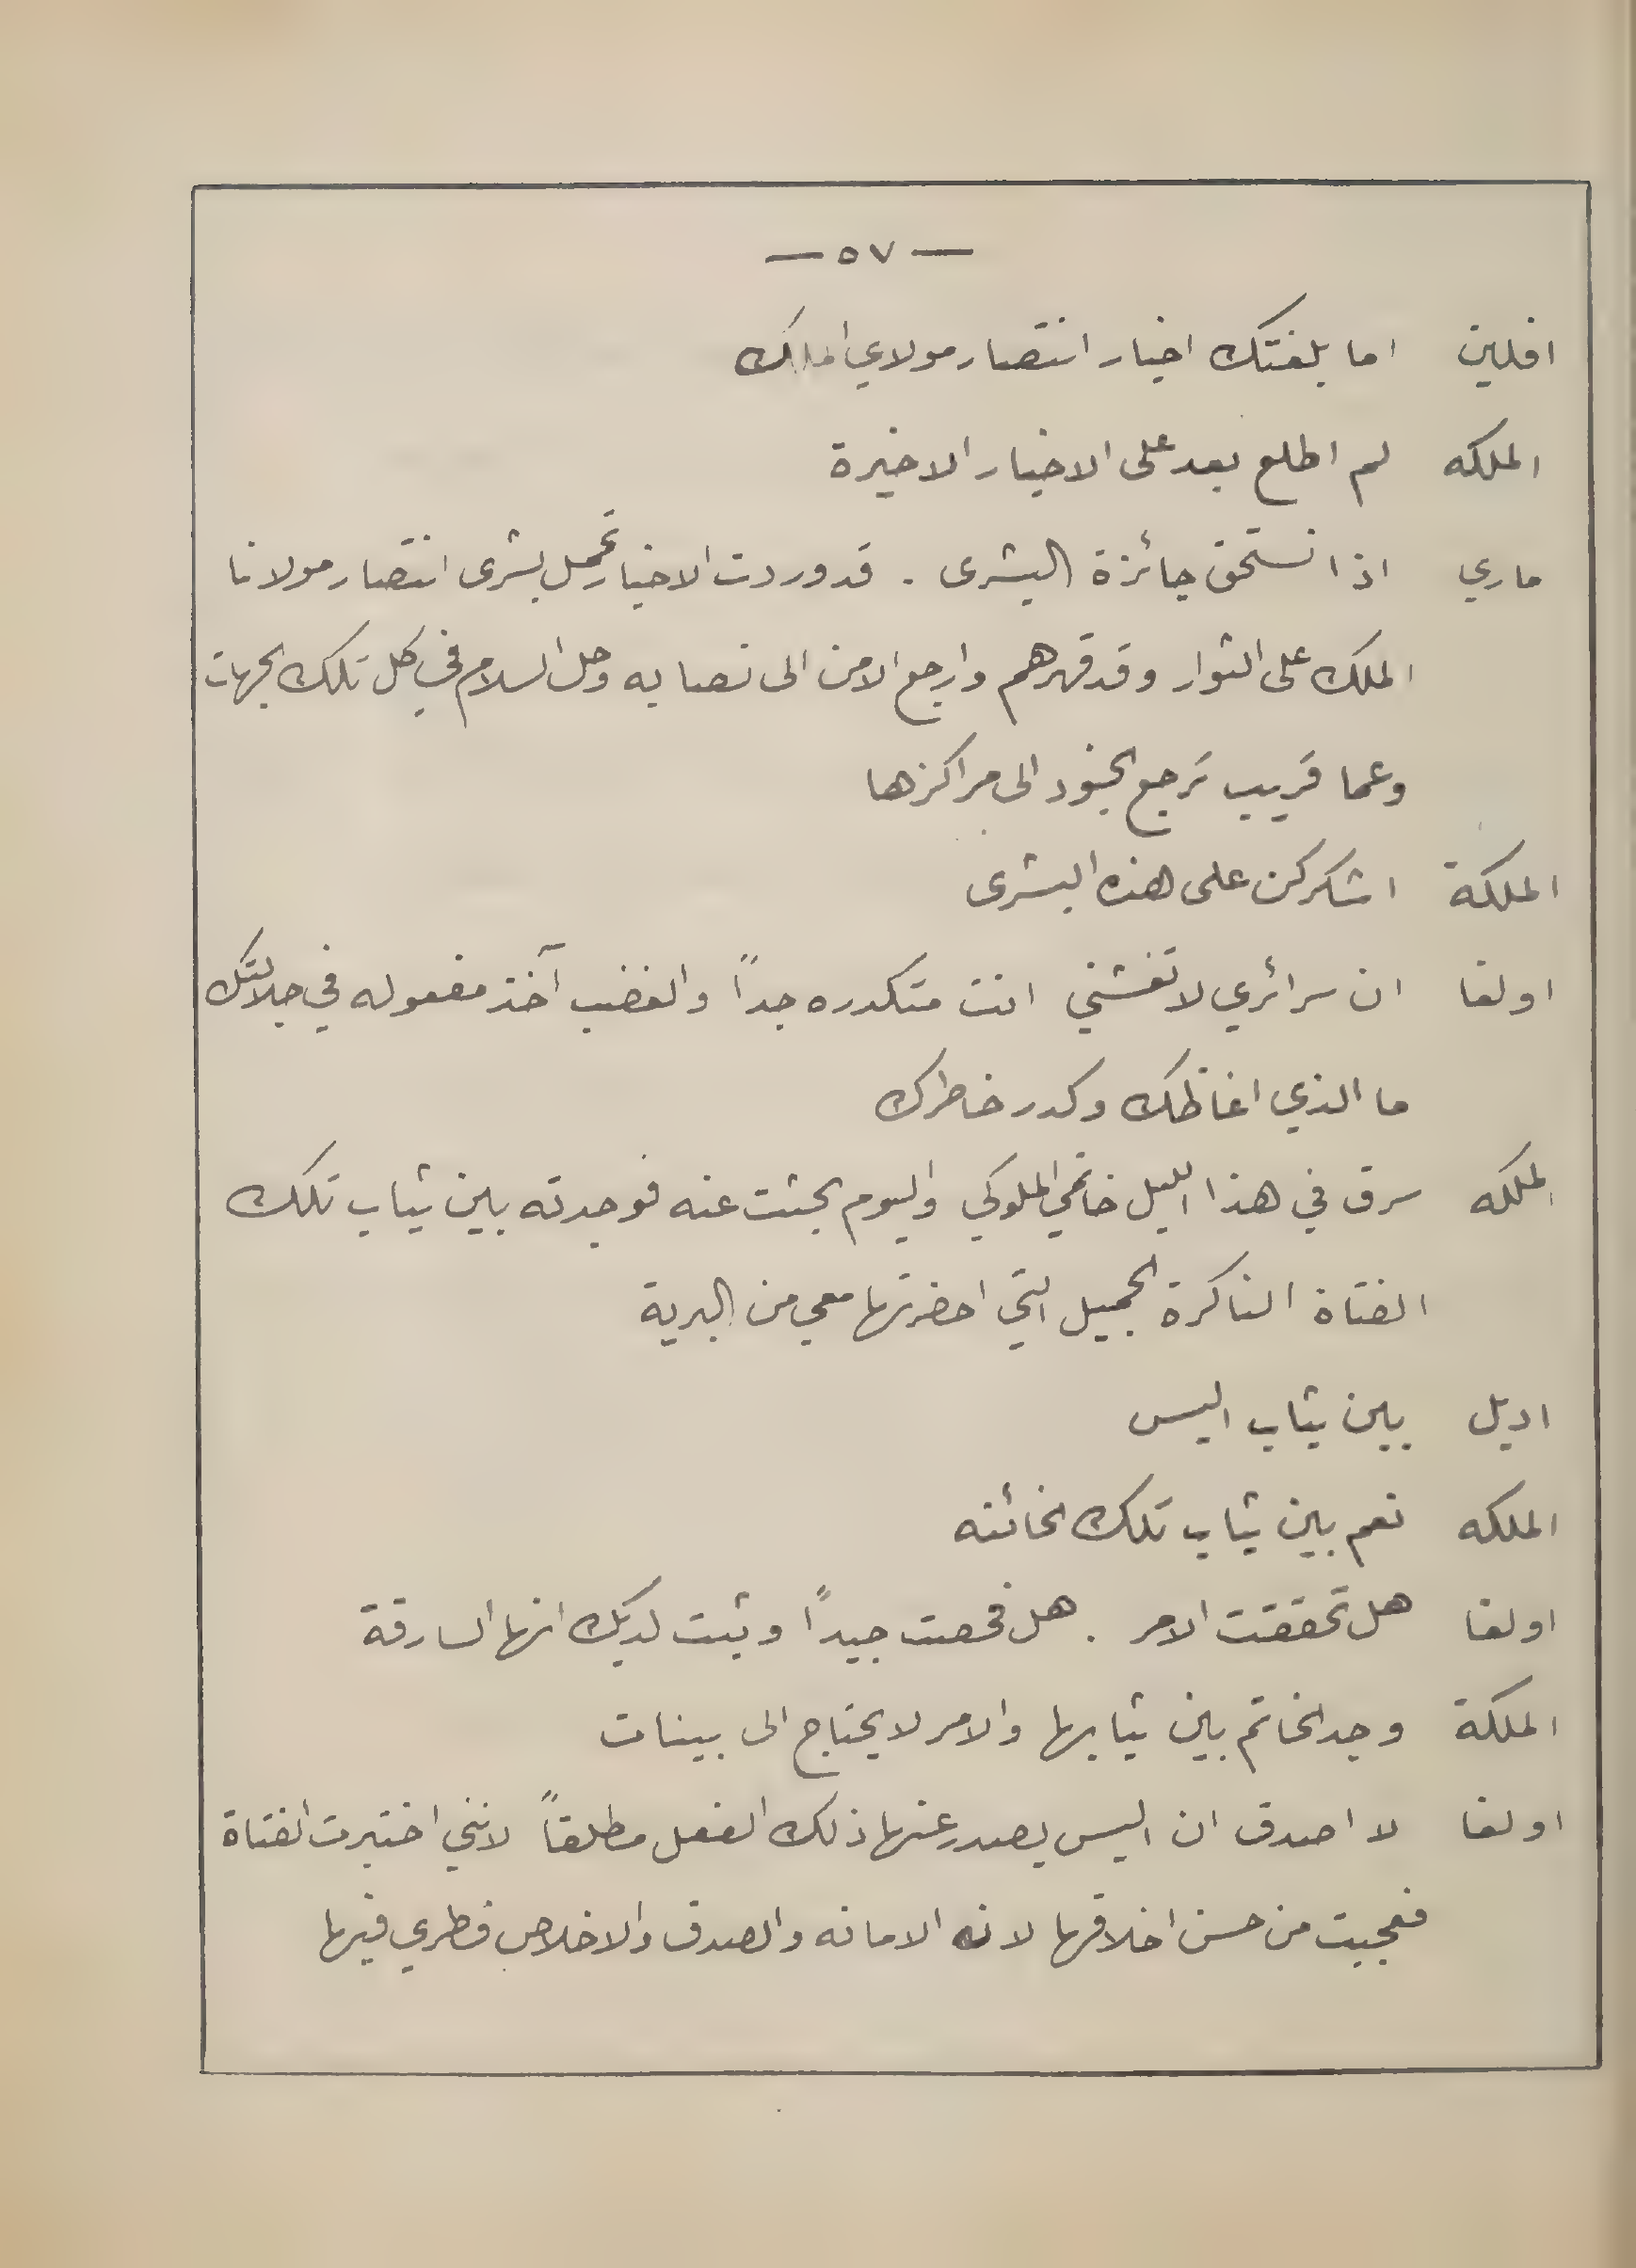 — ٥٧ —
افلين اما بلغتك اخبار انتصار مولاي الملك
الملكه لم اطلع بعد على الاخبار الاخيرة
ماري اذا نستحق جائزة البشرى . قد وردت الاخبار تحمل بشرى انتصار مولانا
الملك على الثوار وقد قهرهم وارجع الامن الى نصابه وحل السلام في كل تلك الجهات
وعما قريب ترجع الجنود الى مراكزها
الملكة اشكركن على هذه البشرى
اولغا ان سرائري لا تغشني انت متكدره جداً والغضب آخذ مفعوله في جلالتك
ما الذي اغاظك وكدر خاطرك
الملكه سرق في هذا الليل خاتمي الملوكي واليوم بحثت عنه فوجدته بين ثياب تلك
الفتاة الناكرة الجميل التي احضرتها معي من البرية
اديل بين ثياب اليس
الملكه نعم بين ثياب تلك الخائنه
اولغا هل تحققت الامر . هل فحصت جيداً وثبت لديك انها السارقة
الملكة وجد الخاتم بين ثيابها والامر لا يحتاج الى بينات
اولغا لا اصدق ان اليس يصدر عنها ذلك الفعل مطلقاً لانني اختبرت الفتاة
فعجبت من حسن اخلاقها لانه الامانه والصدق والاخلاص فطري فيها